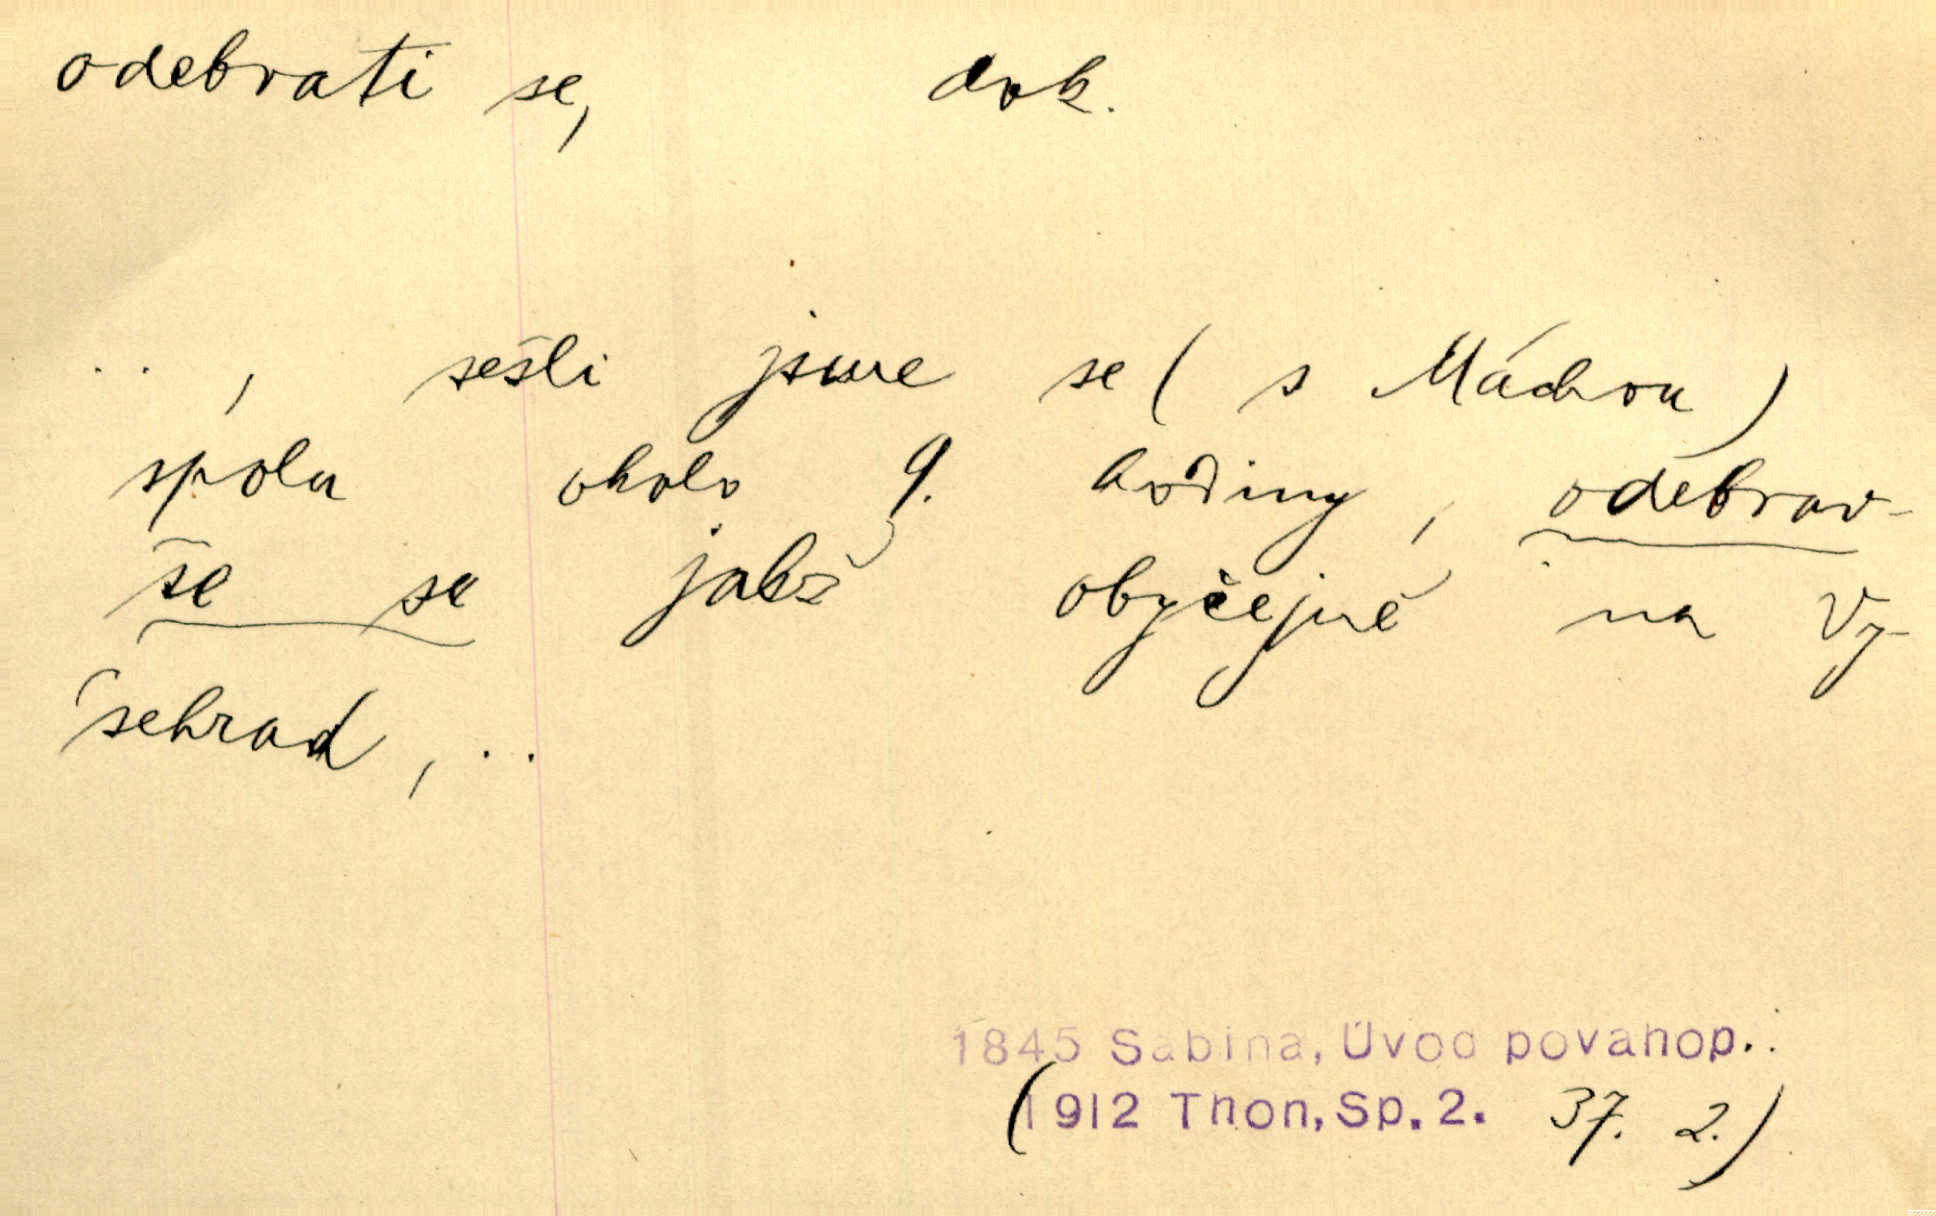 odebrati se, dok.
.. , sešli jsme se ( s Máchou )
spolu okolo 9. hodiny, odebrav-
še se jakž obyčejně na Vy-
šehrad, ..
1845 Sabina, Úvod povahop..
(1912 Thon, Sp. 2. 37. 2.)